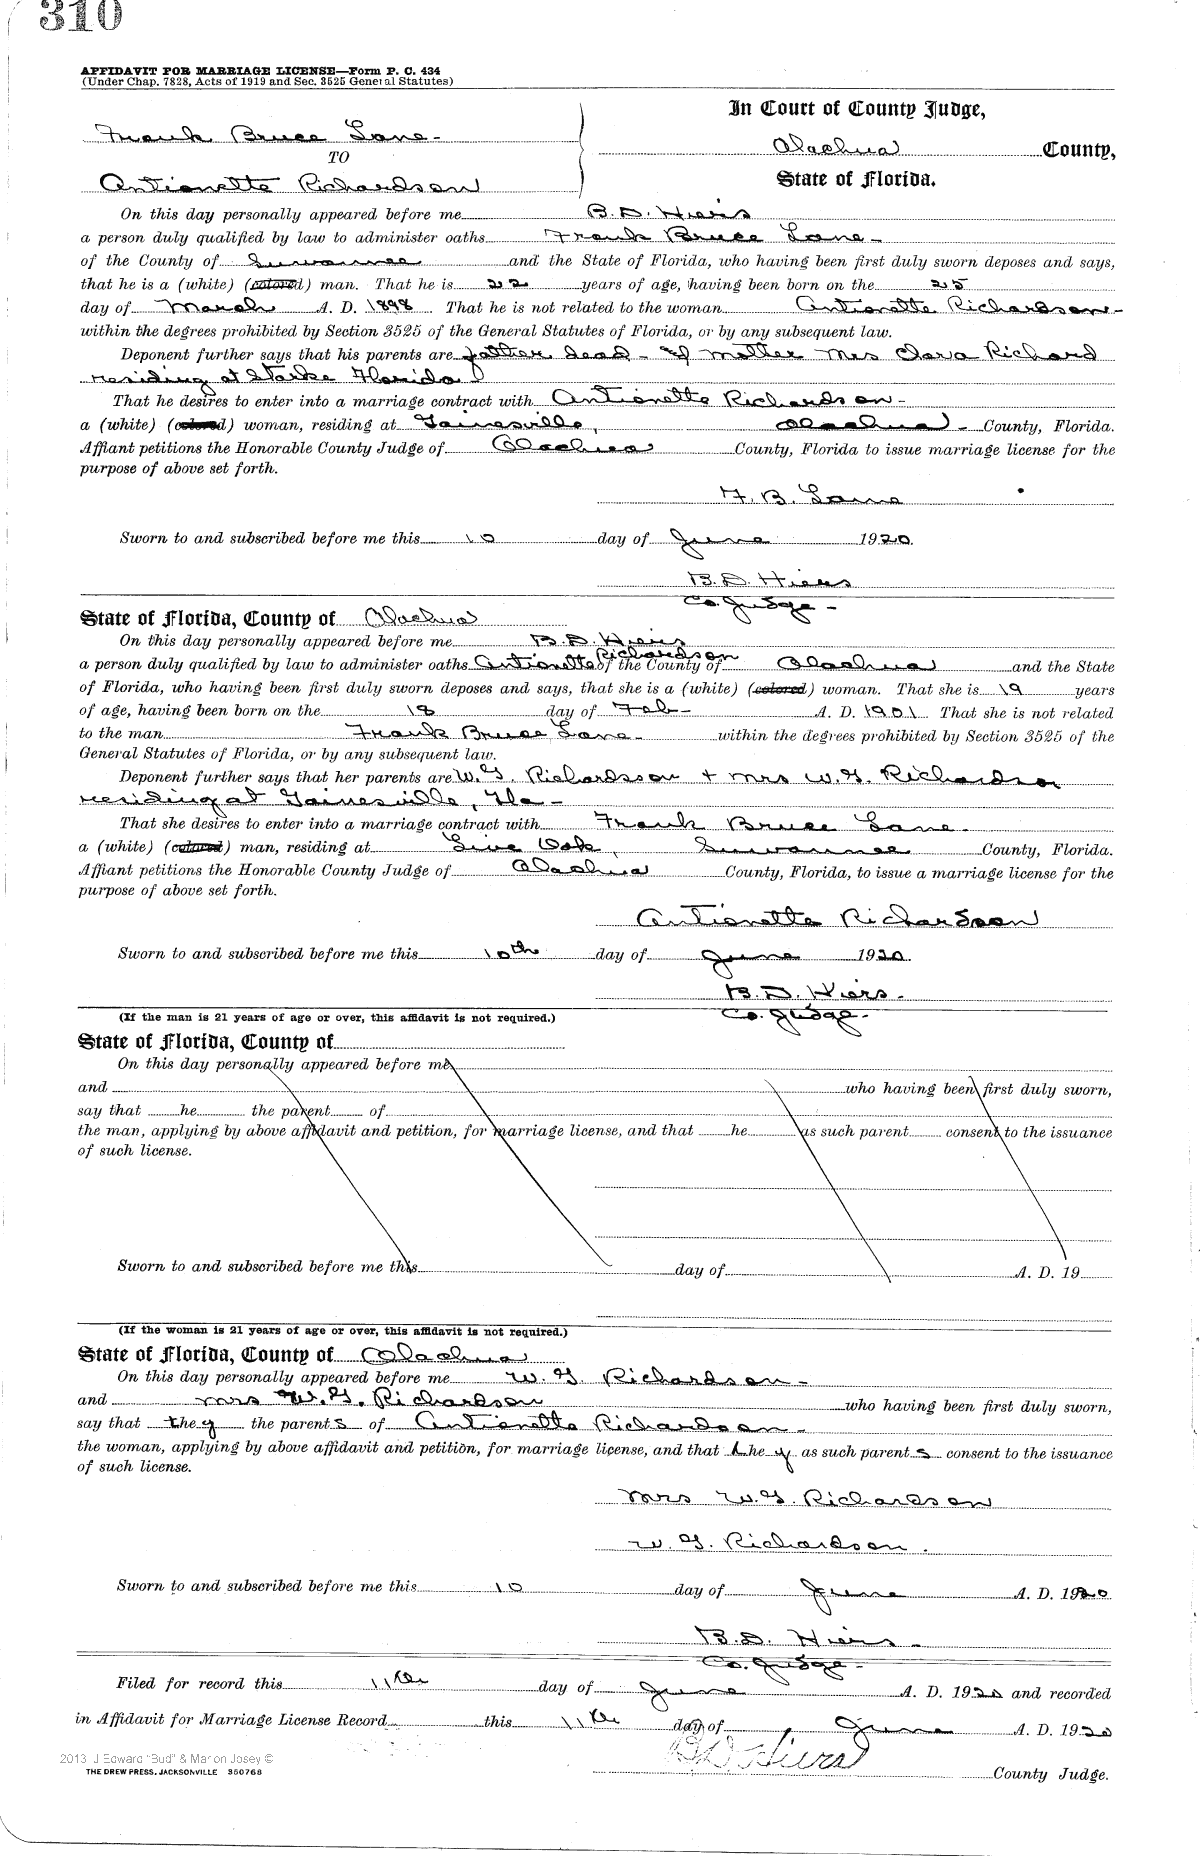 310
AFFIDAVIT FOR MARRIAGE LICENSE—Form P. C. 434
(Under Chap. 7828, Acts of 1919 and Sec. 3525 General Statutes)
Frank Bruce Lane-
TO
Antionette Richardson
In Court of County Judge,
Alachua County,
State of Florida.
On this day personally appeared before me B. D. Hiers
a person duly qualified by law to administer oaths Frank Bruce Lane-
of the County of Suwannee and the State of Florida, who having been first duly sworn deposes and says,
that he is a (white) (colored) man. That he is 22 years of age, having been born on the 25
day of March A. D. 1898 That he is not related to the woman Antionette Richardson-
within the degrees prohibited by Section 3525 of the General Statutes of Florida, or by any subsequent law.
Deponent further says that his parents are father dead - & mother Mrs Clara Richard
residing at Starke Florida
That he desires to enter into a marriage contract with Antionette Richardson-
a (white) (colored) woman, residing at Gainesville, Alachua- County, Florida.
Affiant petitions the Honorable County Judge of Alachua County, Florida to issue marriage license for the
purpose of above set forth.
F. B. Lane
Sworn to and subscribed before me this 10 day of June 1920.
B. D. Hiers
Co. Judge-
State of Florida, County of Alachua
On this day personally appeared before me B. D. Hiers
a person duly qualified by law to administer oaths Antionette Richardson of the County of Alachua and the State
of Florida, who having been first duly sworn deposes and says, that she is a (white) (colored) woman. That she is 19 years
of age, having been born on the 18 day of Feb- A. D. 1901 That she is not related
to the man Frank Bruce Lane- within the degrees prohibited by Section 3525 of the
General Statutes of Florida, or by any subsequent law.
Deponent further says that her parents are W. G. Richardson + Mrs W. G. Richardson
residing at Gainesville, Fla-
That she desires to enter into a marriage contract with Frank Bruce Lane-
a (white) (colored) man, residing at Live Oak, Suwannee County, Florida.
Affiant petitions the Honorable County Judge of Alachua County, Florida, to issue a marriage license for the
purpose of above set forth.
Antionette Richardson
Sworn to and subscribed before me this 10th day of June 1920.
B. D. Hiers-
Co. Judge-
(If the man is 21 years of age or over, this affidavit is not required.)
State of Florida, County of
On this day personally appeared before me
and who having been first duly sworn,
say that he the parent of
the man, applying by above affidavit and petition, for marriage license, and that he as such parent consent to the issuance
of such license.
Sworn to and subscribed before me this day of A. D. 19
(If the woman is 21 years of age or over, this affidavit is not required.)
State of Florida, County of Alachua
On this day personally appeared before me W. G. Richardson-
and Mrs W. G. Richardson who having been first duly sworn,
say that they the parents of Antionette Richardson-
the woman, applying by above affidavit and petition, for marriage license, and that they as such parents consent to the issuance
of such license.
Mrs W. G. Richardson
W. G. Richardson.
Sworn to and subscribed before me this 10 day of June A. D. 1920
B. D. Hiers-
Co. Judge-
Filed for record this 11th day of June A. D. 1920 and recorded
in Affidavit for Marriage License Record this 11th day of June A. D. 1920
B D Hiers
County Judge.
2013 J Edward "Bud" & Marion Josey ©
THE DREW PRESS, JACKSONVILLE 350768